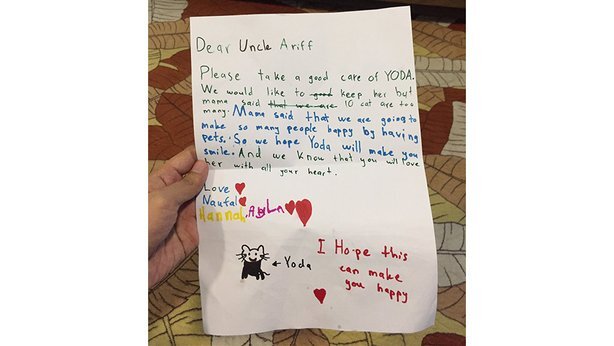 Dear Uncle Ariff
Please take a good care of YODA.
We would like to good keep her but
mama said that we are 10 cat are too
many. Mama said that we are going to
make so many people happy by having
pets. So we hope Yoda will make you
smile. And we know that you will love
her with all your heart.
Love
Naufal
Hannah.
← Yoda
I Hope this
can make
you happy